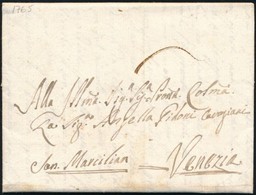 Alla Illma. Sig.ra Sig.ra Prona Colma
La Sig.ra Angella Fidoni
San Marcilian Venezia